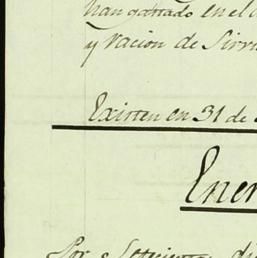 han gastado en el
y racion de Sirv
Existen en 31 de
Ener
Por